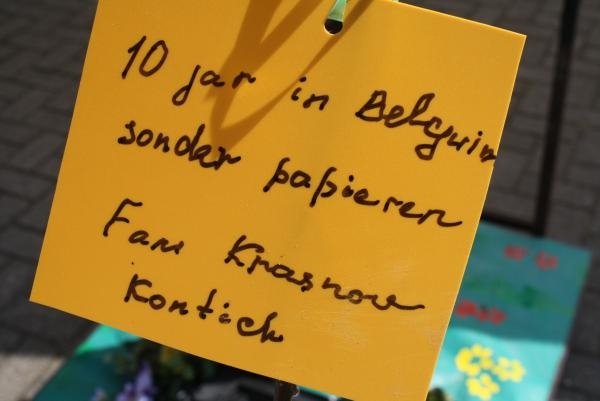 10 jar in Belguim
sonder papieren
Fam Krasnow
Kontich